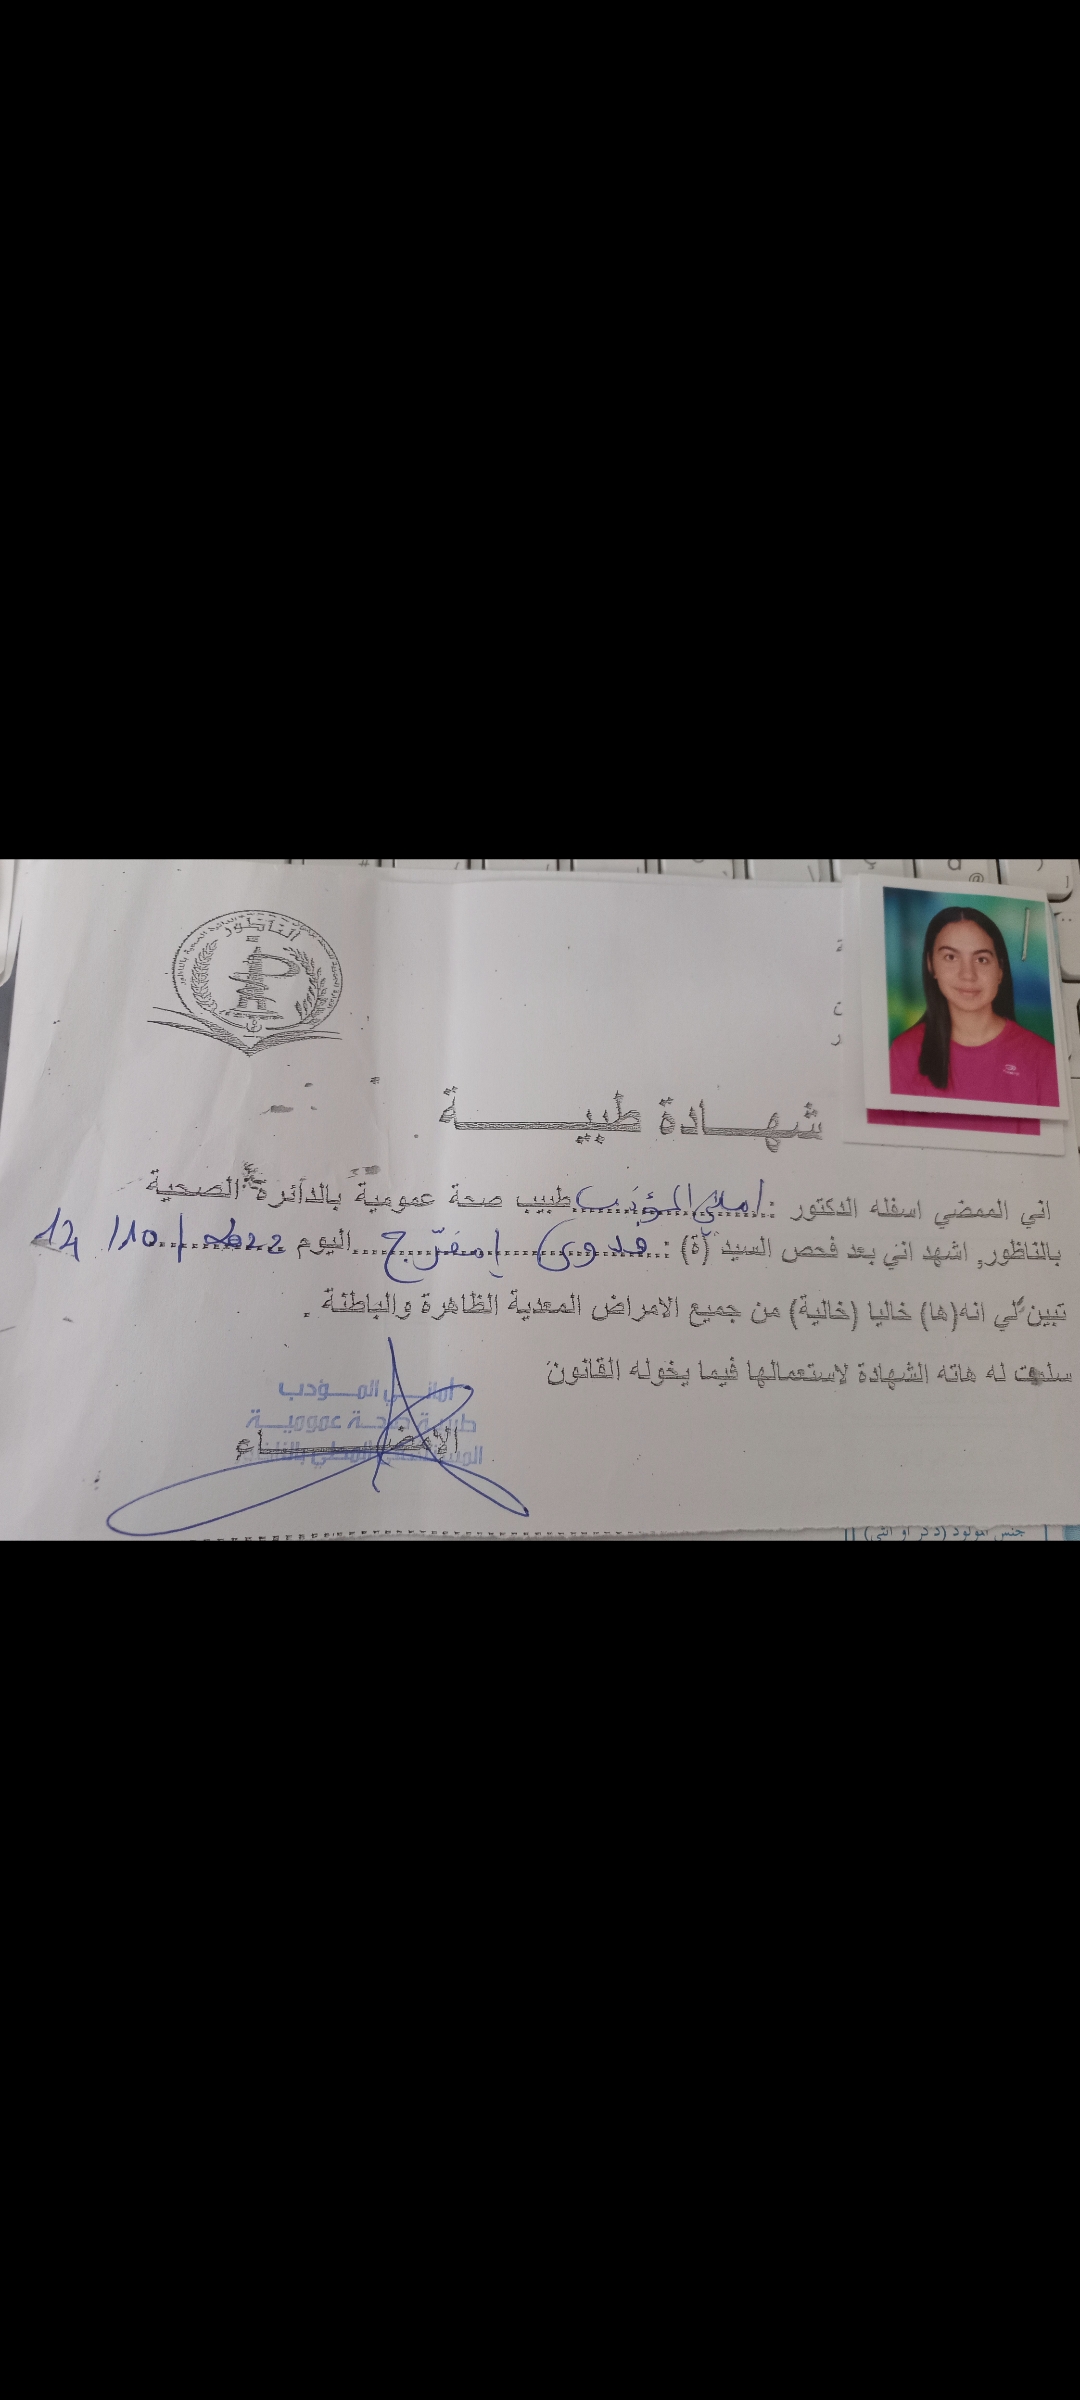 الناظور
شهـــادة طبيـــــة
اني الممضي اسفله الدكتور : أماني المؤدب طبيب صحة عمومية بالدائرة الصحية
بالناظور, اشهد اني بعد فحص السيد (ة) : فدوى امفرّج اليوم 12/10/2022
تبين لي انه(ها) خاليا (خالية) من جميع الامراض المعدية الظاهرة والباطنة .
سلمت له هاته الشهادة لاستعمالها فيما يخوله القانون
أمانـــي المـــؤدب
طبيبة صحـــة عموميـــة
الامضـــــــاء
جنس المولود (ذكر او انثى)